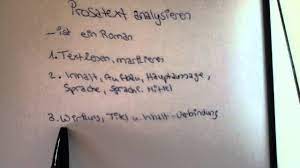 Prosatext analysieren
- ist ein Roman
1. Textlesen, markieren
2. Inhalt, Aufbau, Hauptaussage,
Sprache, Sprachl. Mittel
3. Wirkung, Titel u. Inhalt-Verbindung